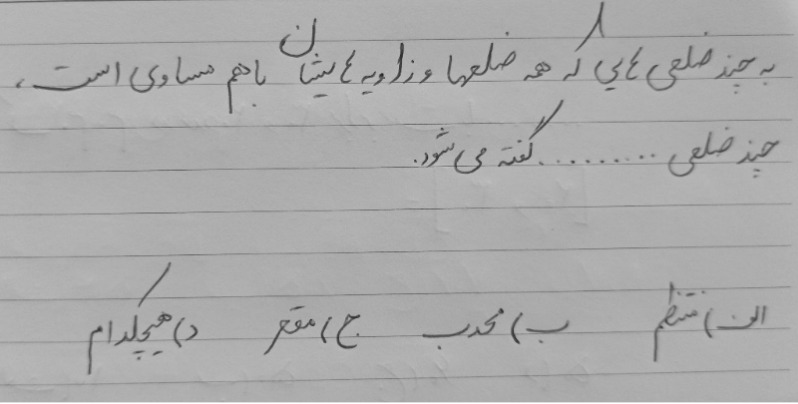 به چند ضلعی هایی که همه ضلعها و زاویه هایشان باهم مساوی است،
چند ضلعی .......... گفته می شود.
الف) منتظم ب) محدب ج) مقعر د) هیچکدام